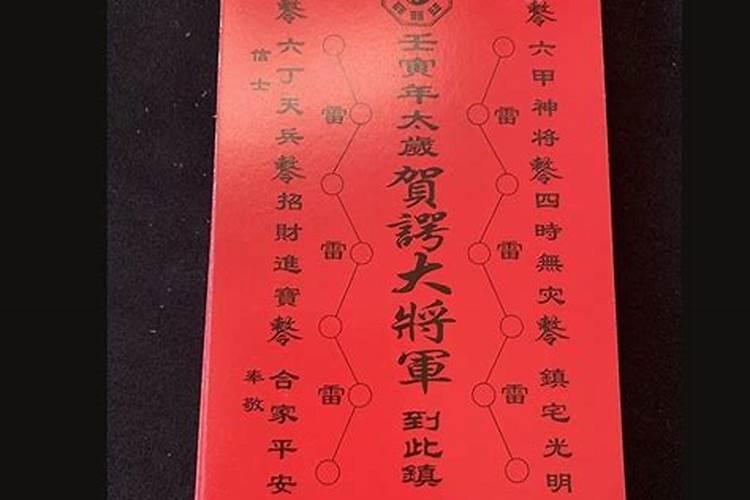 六甲神將 四時無灾 鎮宅光明
雷 雷 雷
壬寅年太歲賀諤大將軍到此鎮
雷 雷 雷
六丁天兵 招財進寶 合家平安
信士 奉敬